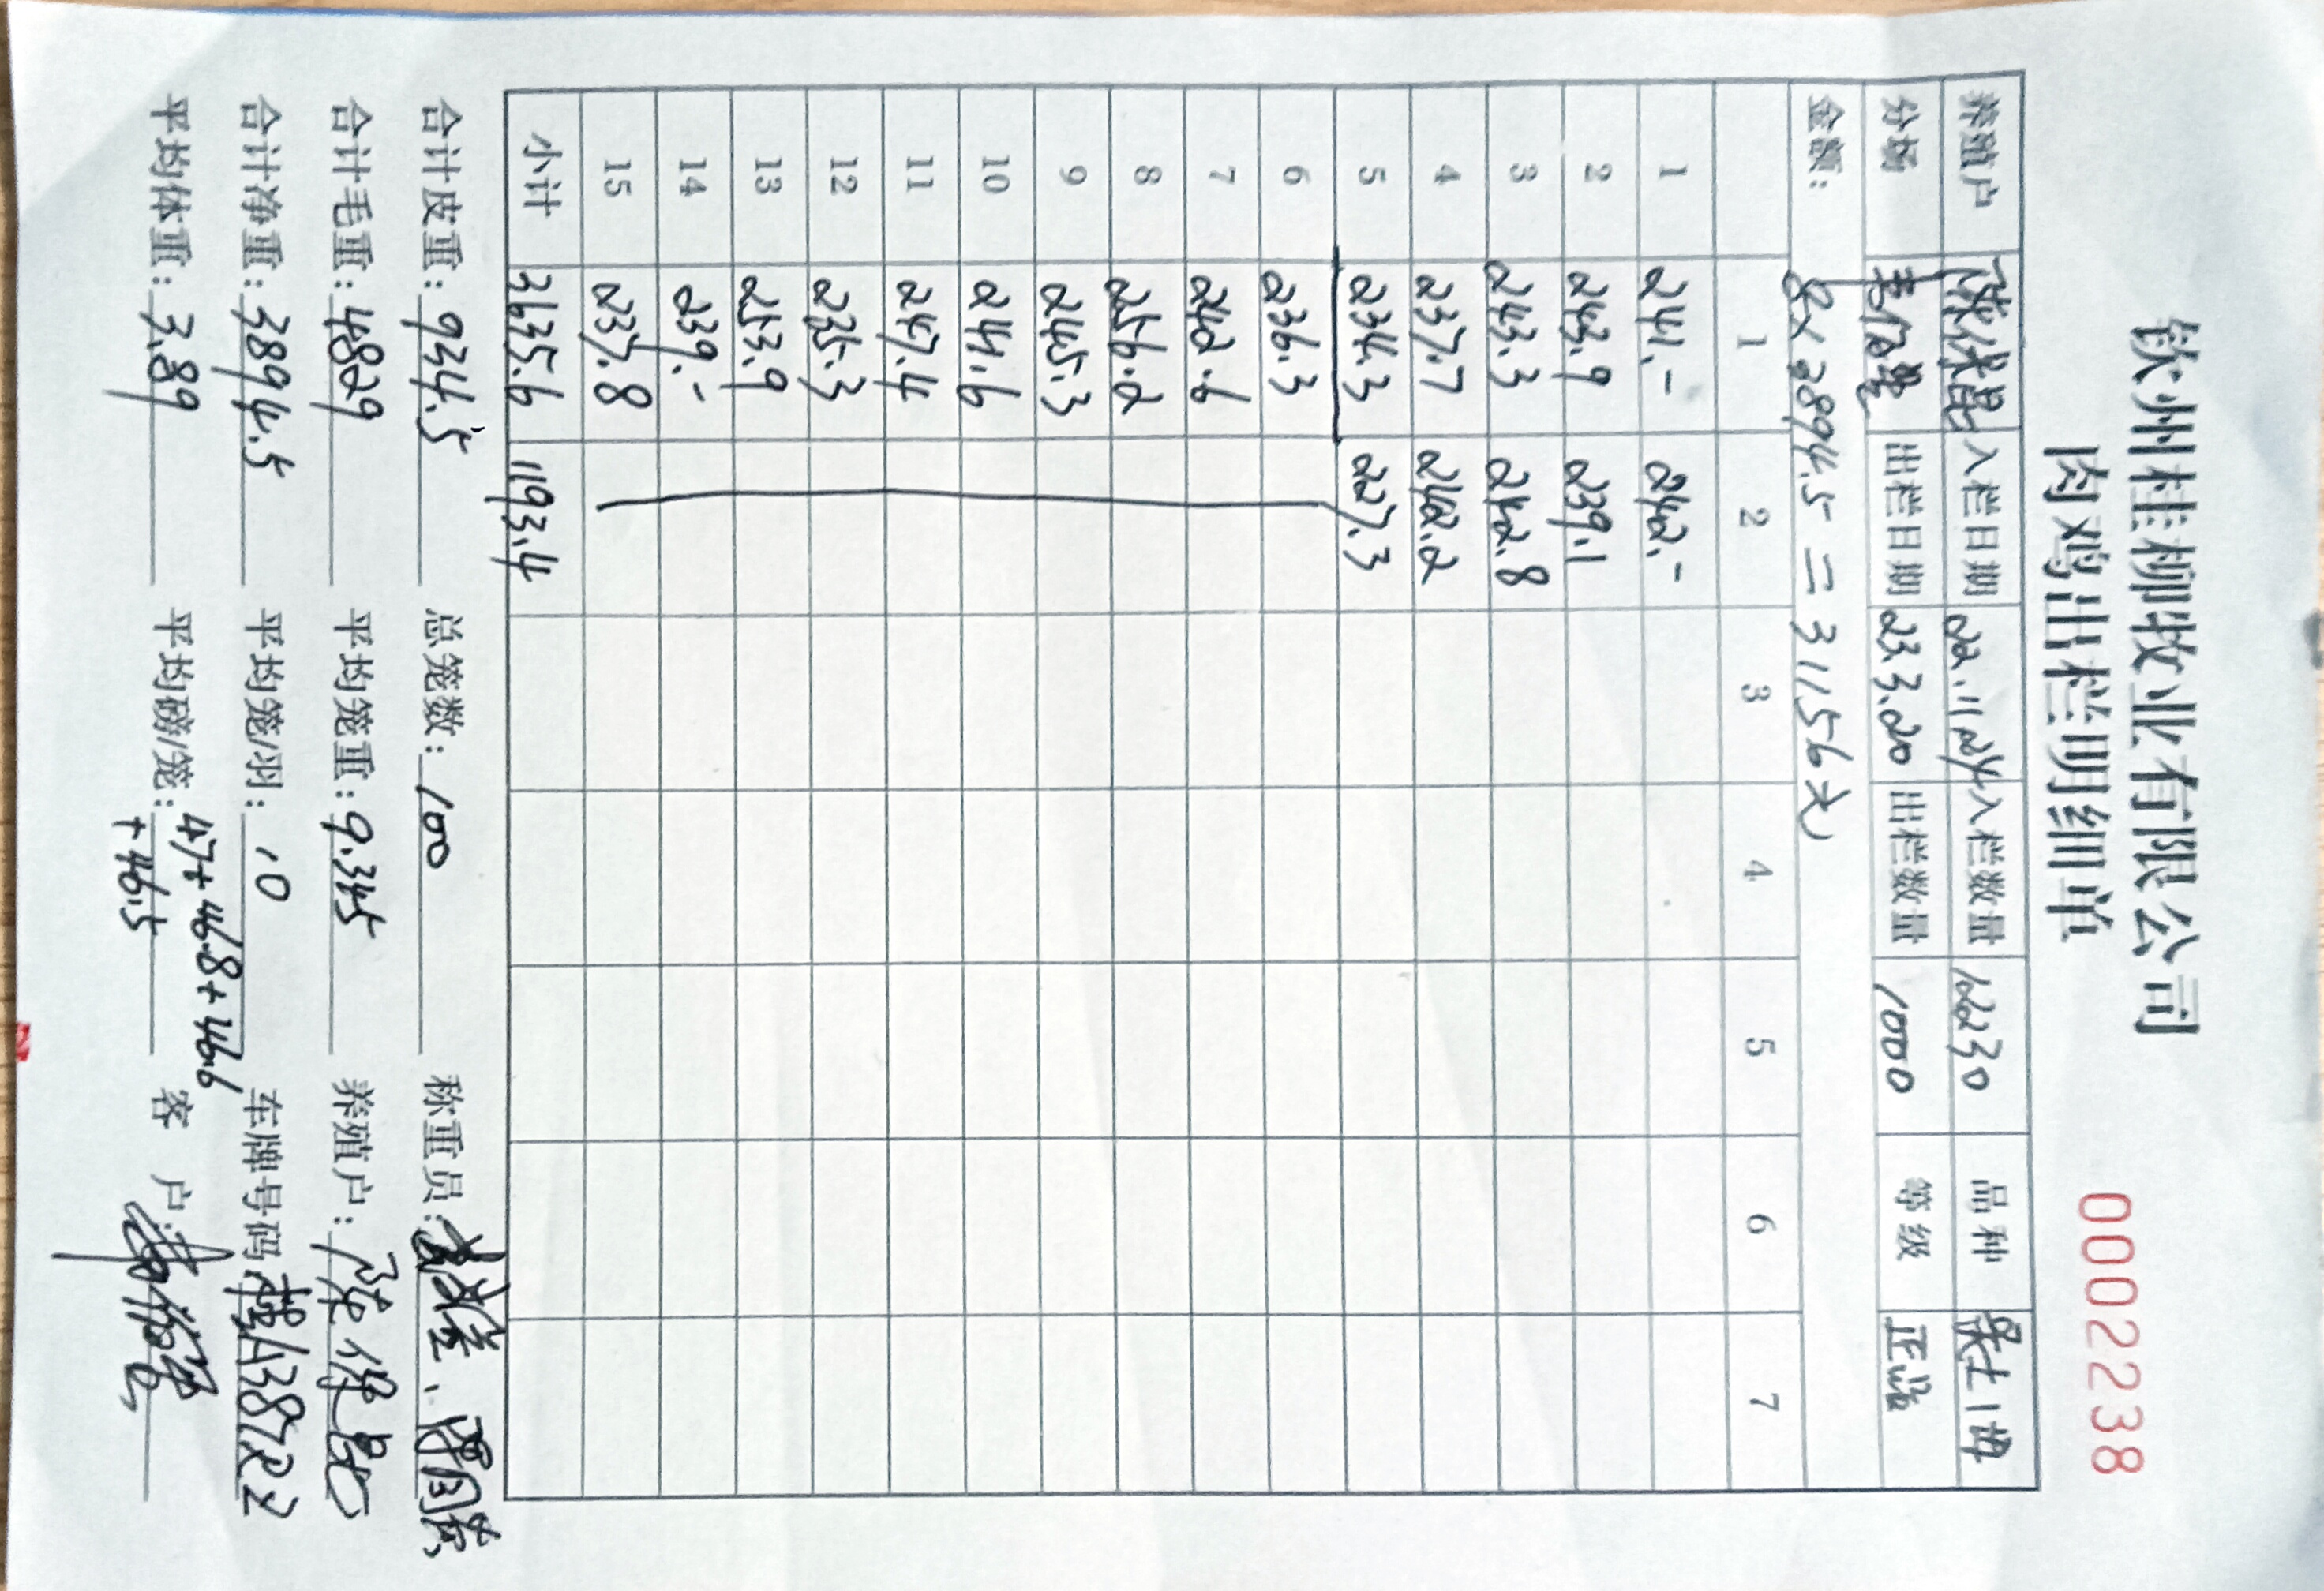 钦州桂柳牧业有限公司
肉鸡出栏明细单
0002238
养殖户 陈保昆 入栏日期 22.11.24 入栏数量 12230 品种
分场 出栏日期 23.3.20 出栏数量 1000 等级
金额: 8×3894.5=31156元
1 2 3 4 5 6 7
1 241.- 242.-
2 243.9 239.1
3 243.3 242.8
4 237.7 242.2
5 234.3 227.3
6 236.3
7 242.6
8 256.2
9 245.3
10 241.6
11 247.4
12 235.3
13 253.9
14 239.-
15 237.8
小计 3635.6 1193.4
合计皮重: 934.5 总笼数: 100 称重员:
合计毛重: 4829 平均笼重: 9.345 养殖户: 陈保昆
合计净重: 3894.5 平均笼/羽: 10 车牌号码:
平均体重: 3.89 平均磅/笼: 47+46.8+46.6 客 户:
+46.5